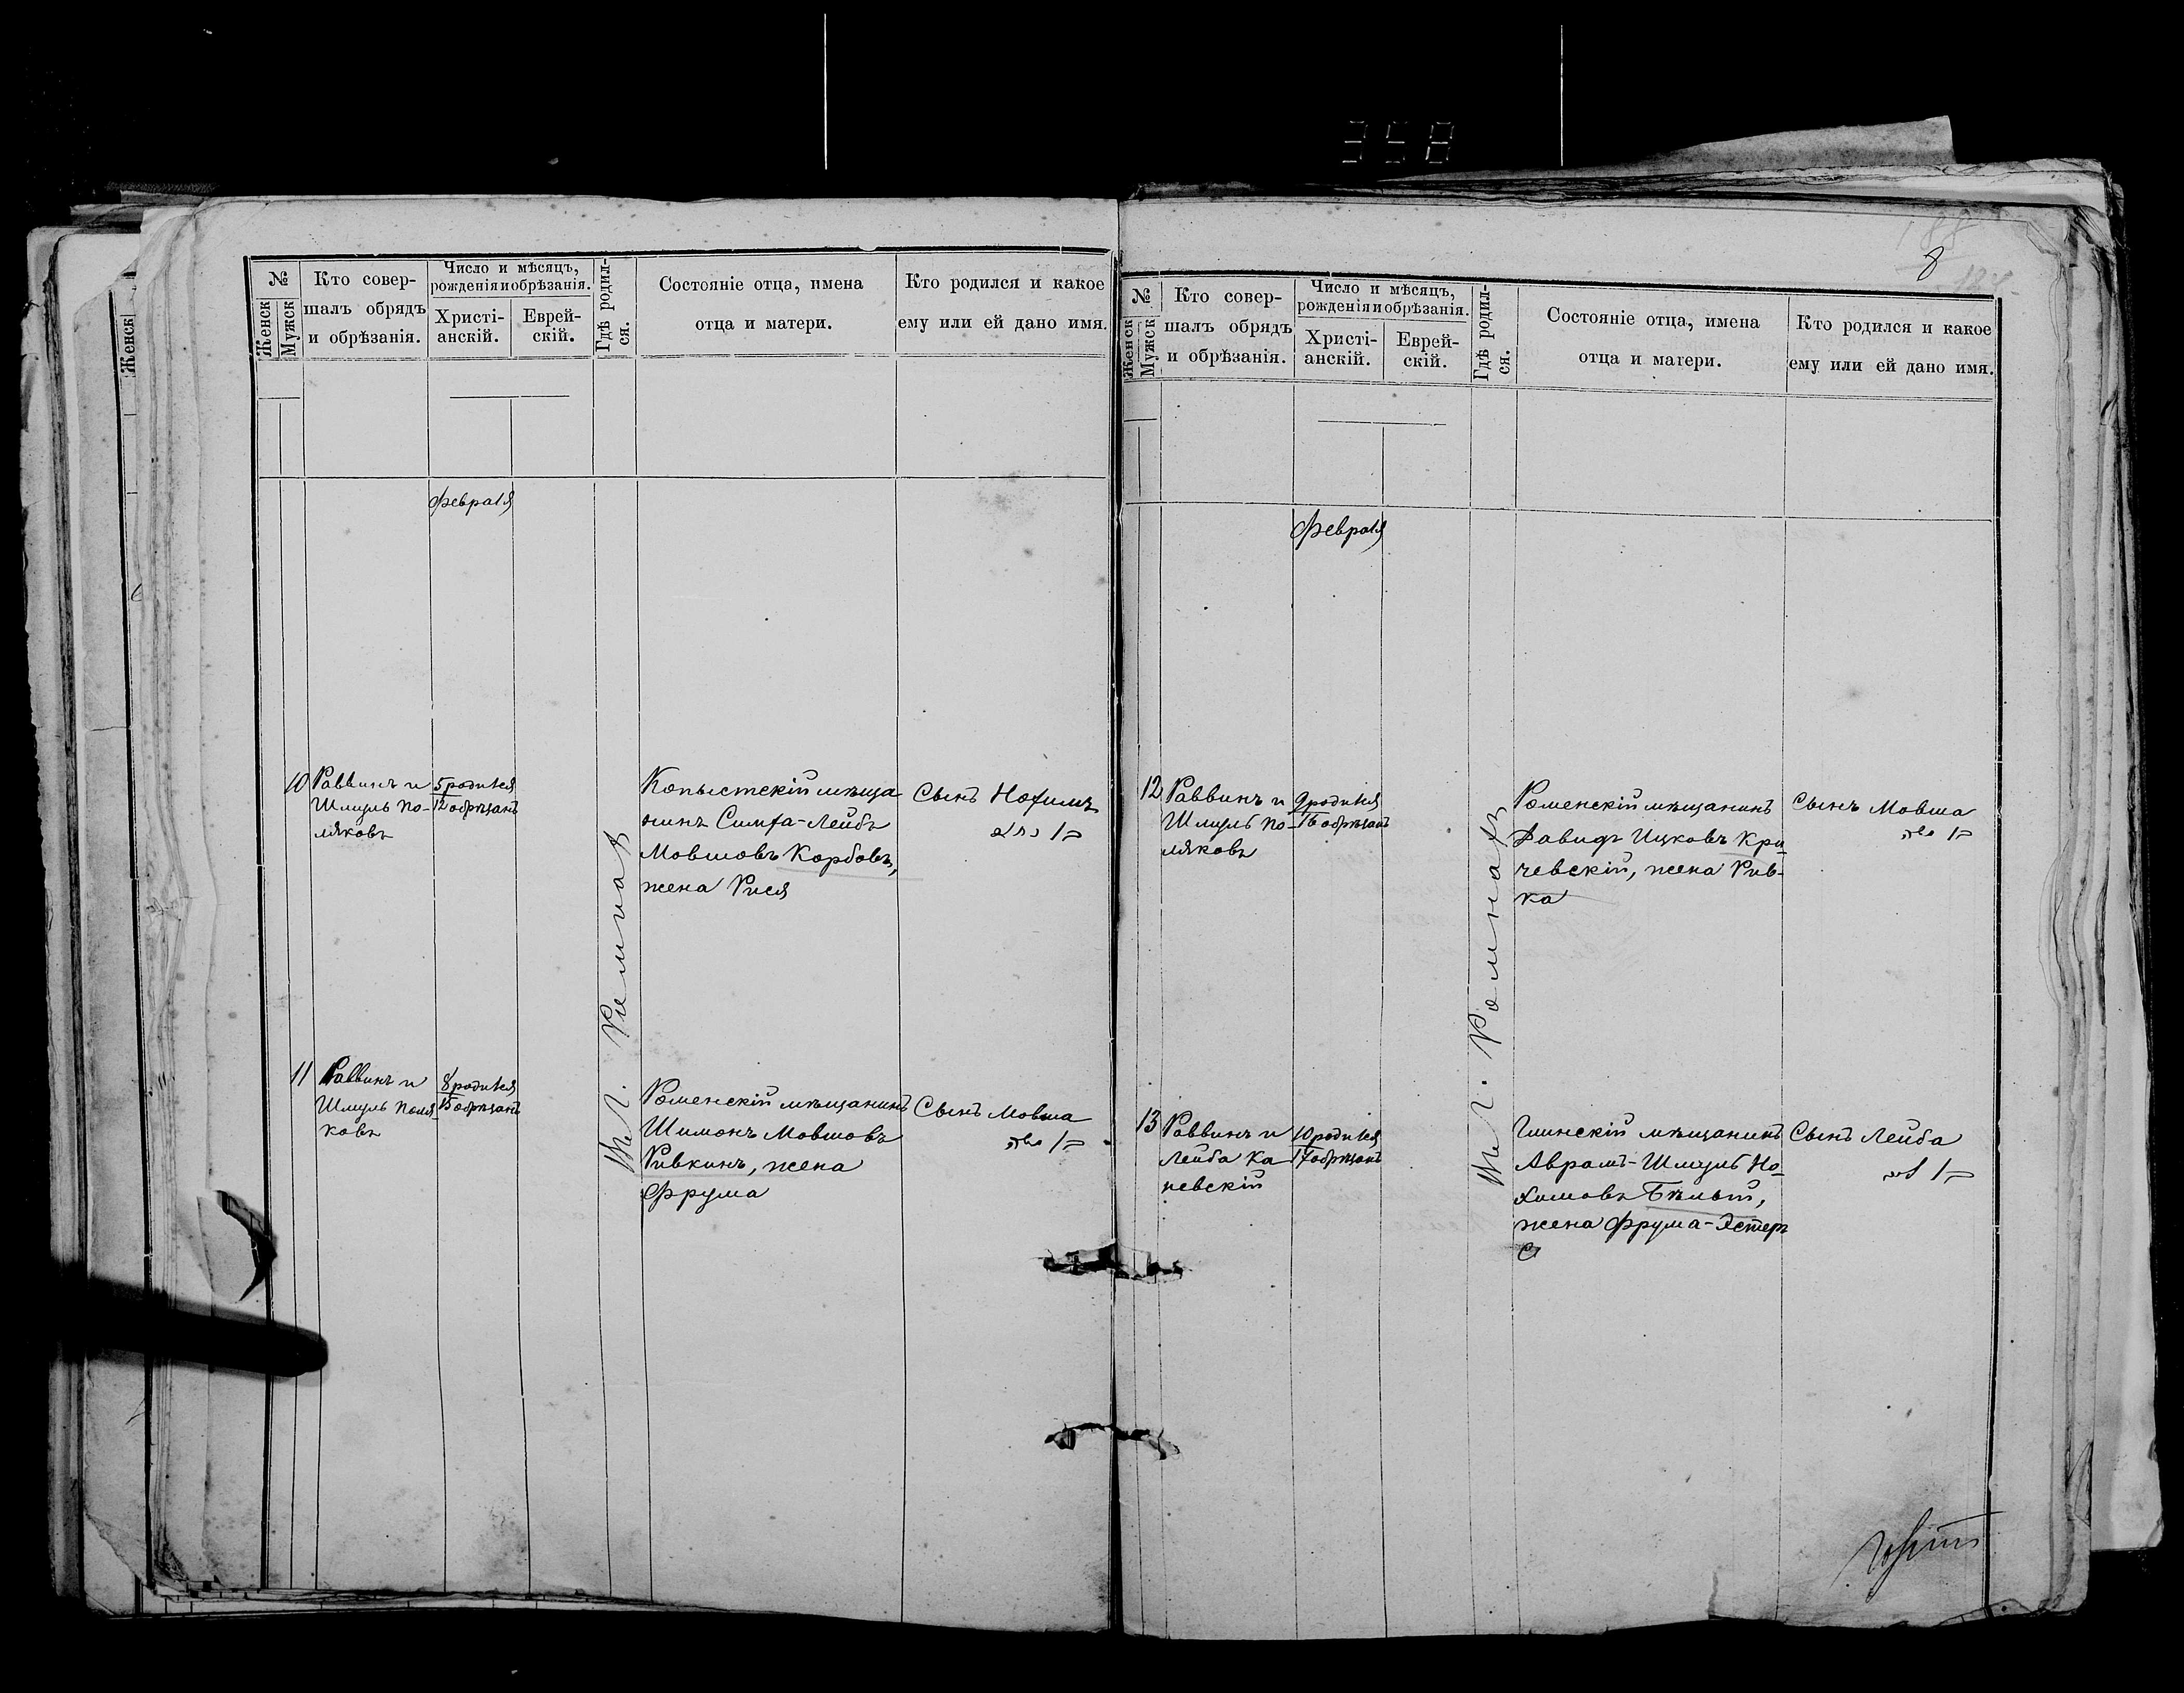 358
№
Женск
Мужск
Кто совер-
шалъ обрядъ
и обрѣзанія.
Число и мѣсяцъ,
рожденія и обрѣзанія.
Христі-
анскій.
Еврей-
скій.
Гдѣ родил-
ся.
Состояніе отца, имена
отца и матери.
Кто родился и какое
ему или ей дано имя.
Февраля
Въ г. Ромнахъ
10
Раввинъ и
Шмуль По-
ляковъ
5 родился
12 обрѣзанъ
Копыстскій мѣща
нинъ Симха-Лейбъ
Мовшовъ Корбовъ,
жена Рися
Сынъ Нохимъ
בן נחום
11
Раввинъ и
Шмуль Поля
ковъ
8 родился
15 обрѣзанъ
Роменскій мѣщанинъ
Шимонъ Мовшовъ
Ривкинъ, жена
Фрума
Сынъ Мовша
בן משה
Женск
8
№
Женск
Мужск
Кто совер-
шалъ обрядъ
и обрѣзанія.
Число и мѣсяцъ,
рожденія и обрѣзанія.
Христі-
анскій.
Еврей-
скій.
Гдѣ родил-
ся.
Состояніе отца, имена
отца и матери.
Кто родился и какое
ему или ей дано имя.
Февраля
Въ г. Ромнахъ
12
Раввинъ и
Шмуль По-
ляковъ
9 родился
16 обрѣзанъ
Роменскій мѣщанинъ
Давидъ Ицковъ Кри
чевскій, жена Рив-
ка
Сынъ Мовша
בן משה
13
Раввинъ и
Лейба Ка
невскій
10 родился
17 обрѣзанъ
Глинскій мѣщанинъ
Аврамъ-Шмуль Но-
химовъ Бѣлый,
жена Фрума-Эстеръ
Сынъ Лейба
בן ליב